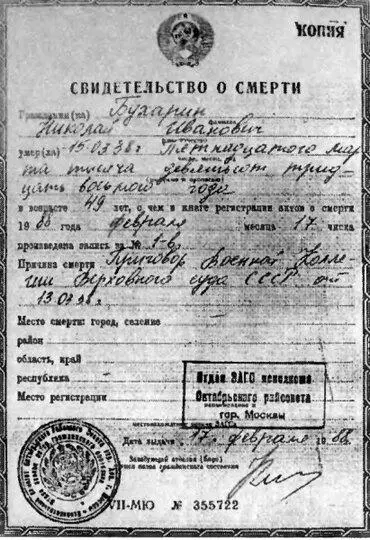 КОПИЯ
СВИДЕТЕЛЬСТВО О СМЕРТИ
Гражданин(ка) Бухарин
фамилия
Николай Иванович
умер(ла) 15.03.38г Пятнадцатого мар
число, месяц, год
та тысяча девятьсот трид
(цифрами и прописью)
цать восьмого года
в возрасте 49 лет, о чем в книге регистрации актов о смерти
1988 года февраля месяца 17 числа
произведена запись за №
Причина смерти Приговор Военной Колле
гии Верховного суда СССР от
13.03.38г.
Место смерти: город, селение
район
область, край
республика
Место регистрации
Отдел ЗАГС исполкома
Октябрьского райсовета
наименование и
гор. Москвы
местонахождение органа ЗАГСа
Дата выдачи 17 февраля 1988г.
Заведующий отделом (бюро)
записи актов гражданского состояния
VII-МЮ № 355722